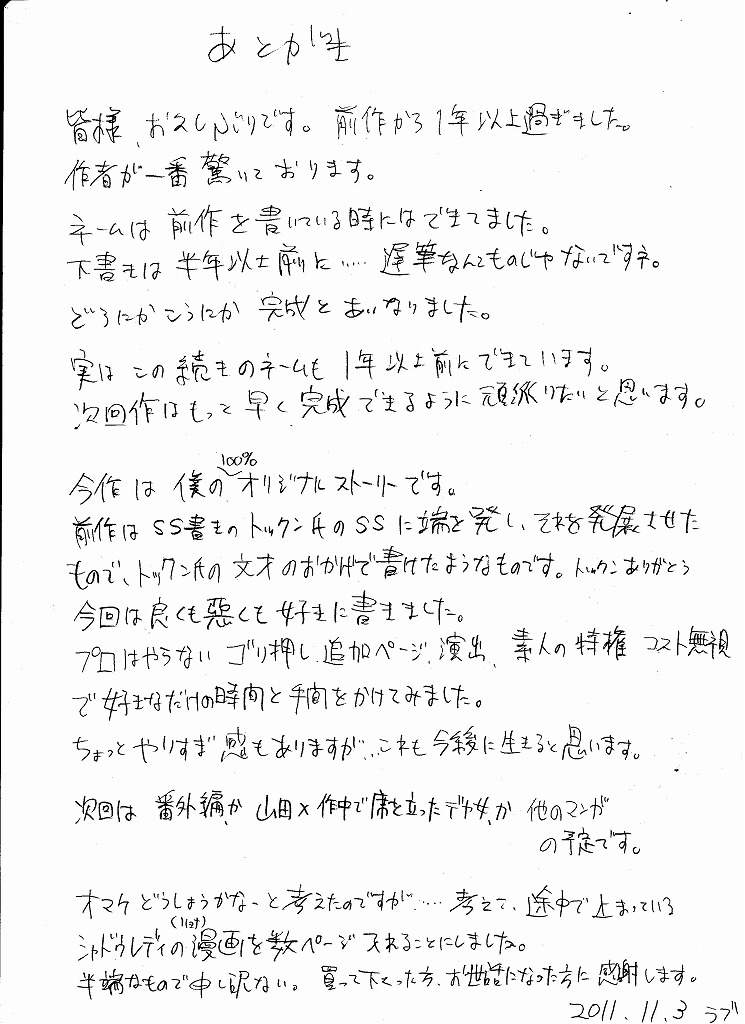 あとがき
皆様、お久しぶりです。前作から1年以上過ぎました。
作者が一番驚いております。
ネームは前作を書いている時にはできてました。
下書きは半年以上前に…… 遅筆なんてものじゃないですネ。
どうにかこうにか完成とあいなりました。
実はこの続きのネームも1年以上前にできています。
次回作はもって早く完成できるように頑張りたいと思います。
100%
今作は僕のオリジナルストーリーです。
前作はSS書きのトックン氏のSSに端を発し、それを発展させた
もので、トックン氏の文才のおかげで書けたようなものです。トックンありがとう
今回は良くも悪くも好きに書きました。
プロはやらないゴリ押し、追加ページ、演出、素人の特権 コスト無視
で好きなだけの時間と手間をかけてみました。
ちょっとやりすぎ感もありますが、これも今後に生きると思います。
次回は 番外編か 山田×作中で席を立ったデカ女、か 他のマンガ
の予定です。
オマケどうしょうかなーと考えたのですが…… 考えて、途中で止まっている
シャドウレディの漫画を数ページ入れることにしました。
半端なもので申し訳ない。買って下さった方、お世話になった方に感謝します。
2011.11.3 ラブ